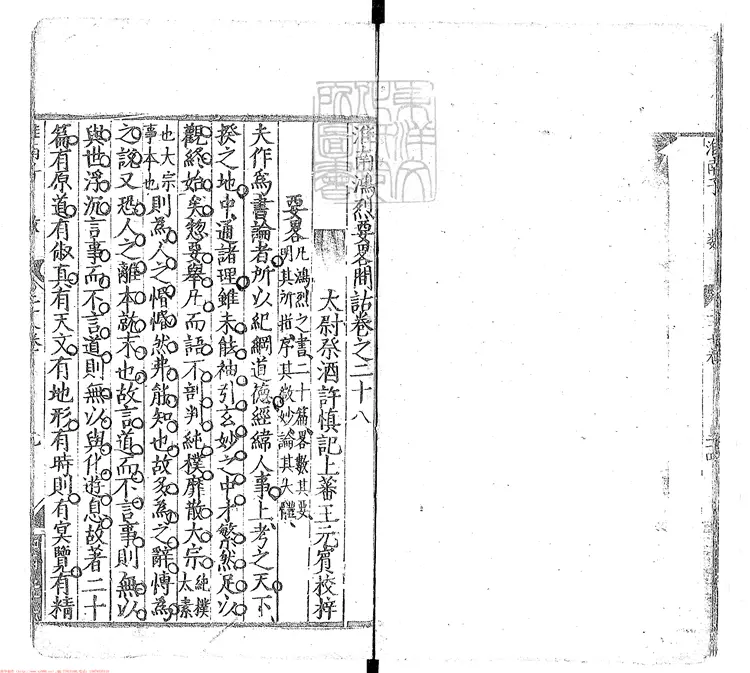 淮南鴻烈要畧間詁卷之二十八
太尉祭酒許慎記上蕃王元賓校梓
要畧凡鴻烈之書二十篇畧數其要明其所指序其微妙論其大體
夫作爲書論者所以紀綱道德經緯人事上考之天下
揆之地中通諸理雖未能抽引玄妙之中才繁然足以
觀終始矣惣要舉凡而語不剖判純樸靡散大宗純樸太素
也大宗事本也則爲人之惽惽然弗能知也故多爲之辭愽爲
之說又恐人之離本就末也故言道而不言事則無以
與世浮沉言事而不言道則無以與化遊息故著二十
篇有原道有俶真有天文有地形有時則有冥覽有精